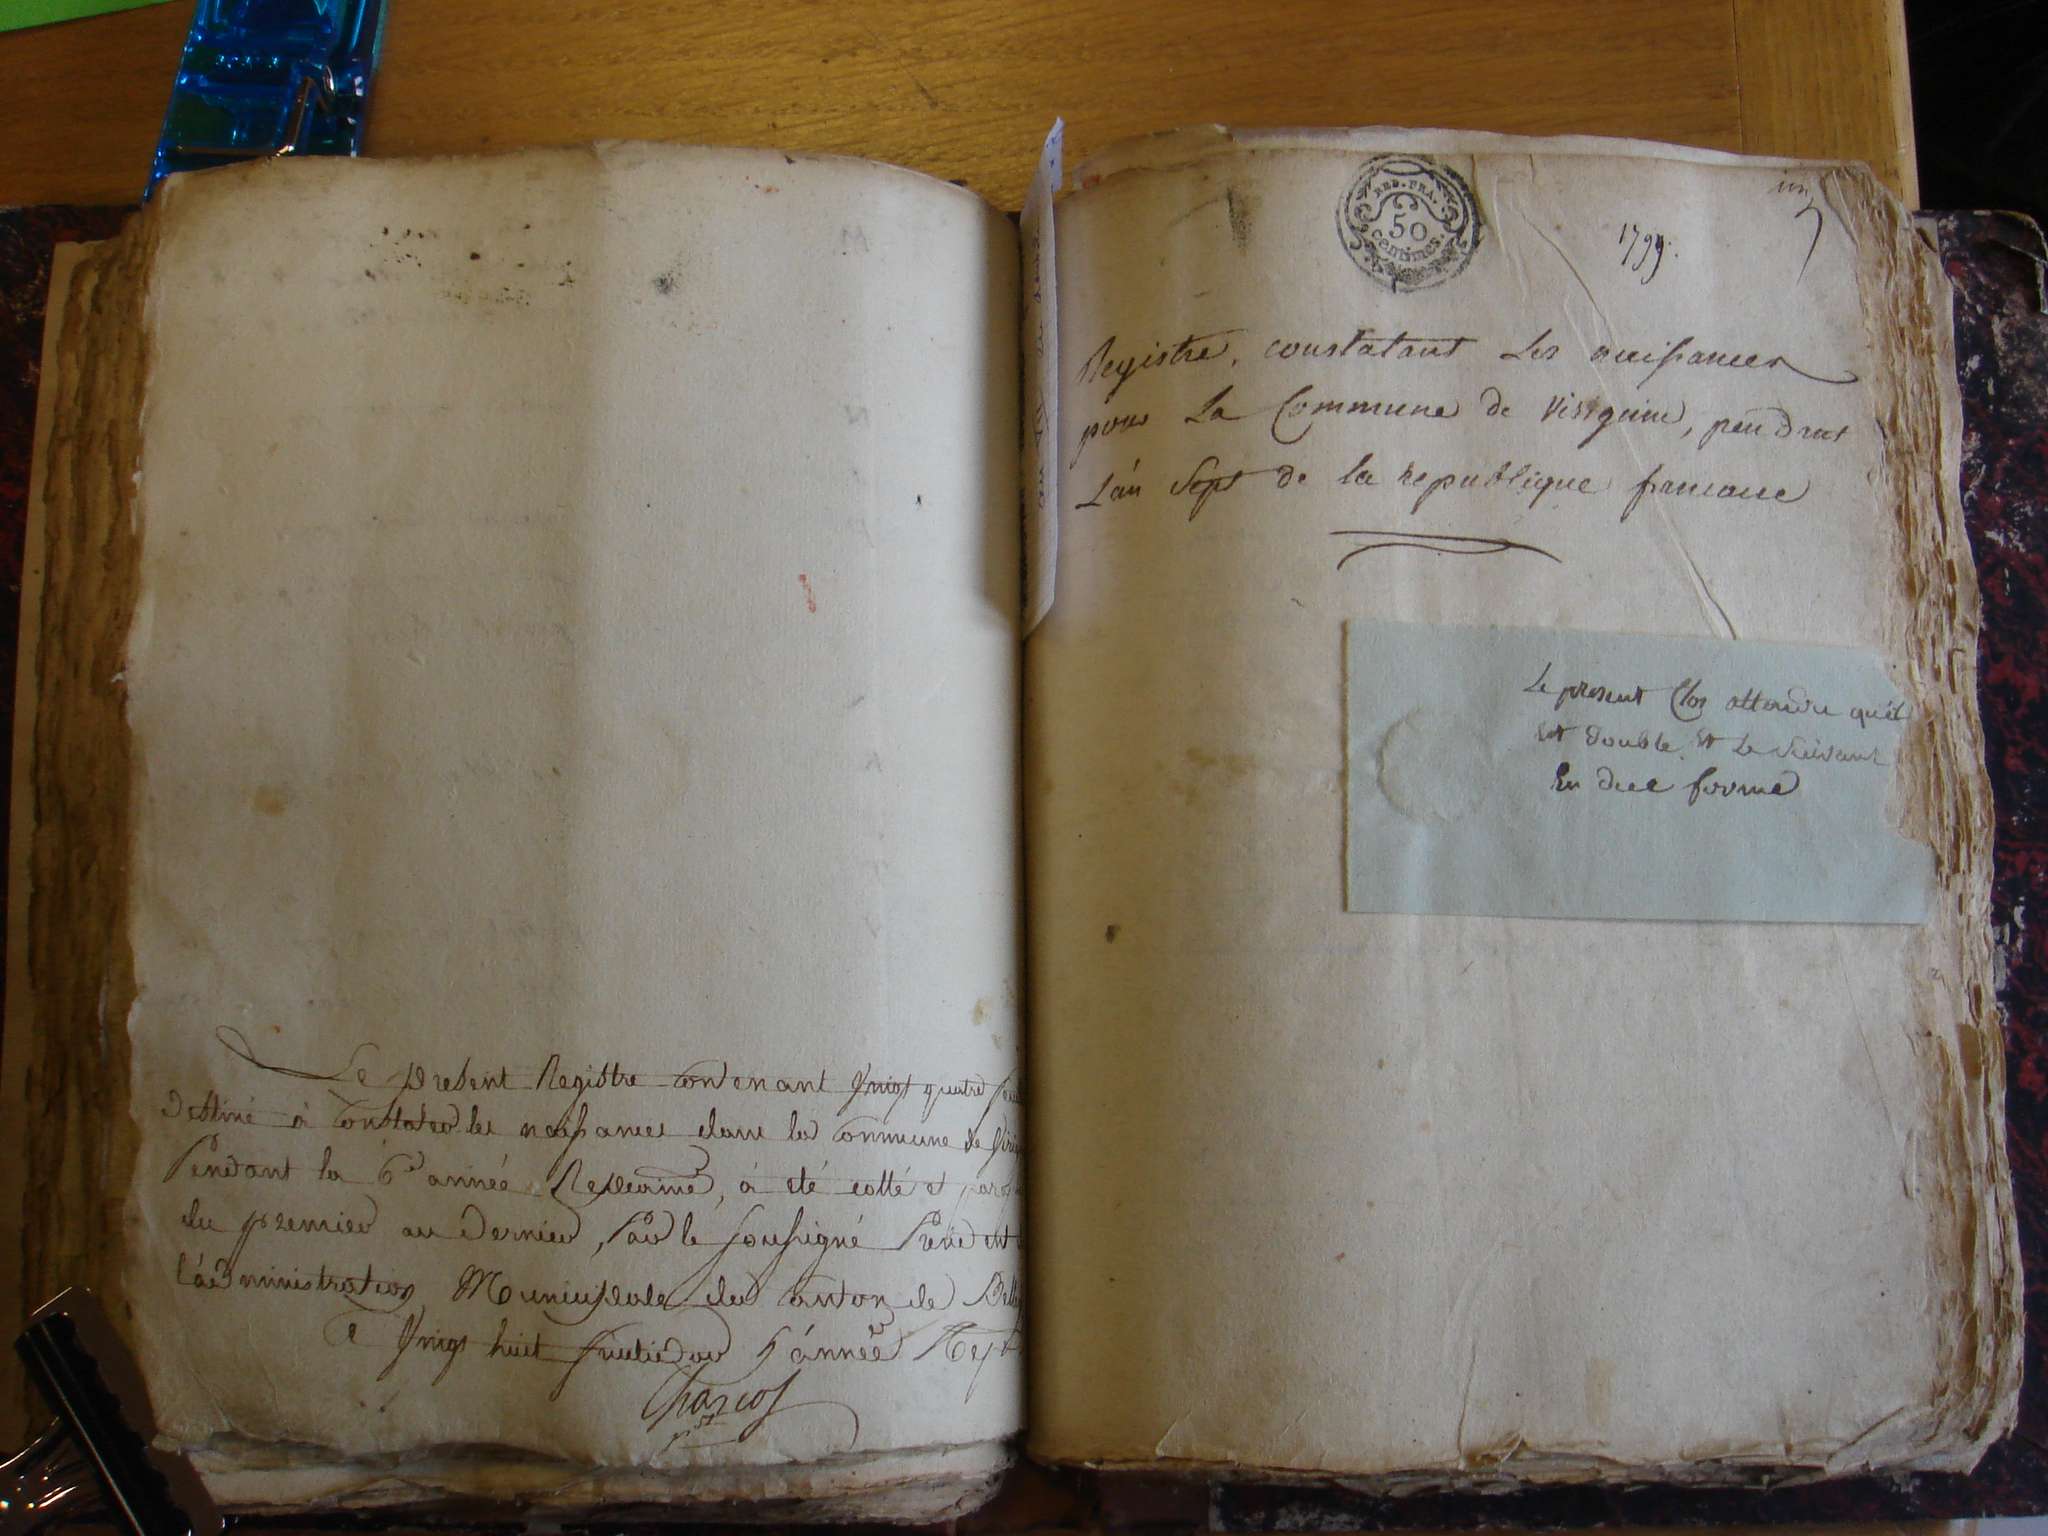 Le present Registre contenant Vingt quatre
destiné à Constater les naissances dans la Commune de
Pendant la 6e année Repcaine, à été cotté et
du premier au dernier, Par le soussigné Présid ent
l'administration Municipale du Canton de
Ce Vingt huit fructidor 5e année
Charcot
pst
REP. FRA.
50
centimes.
un
1799.
Registre, constatant Les naissances
pour La Commune de Viriguin, pendant
L'an Sept de la republique francaise
Le present Clos attendu qu'il
Est double Et Le Suivant
En due forme